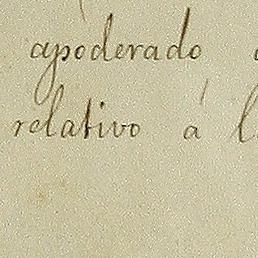 apoderado
relativo á